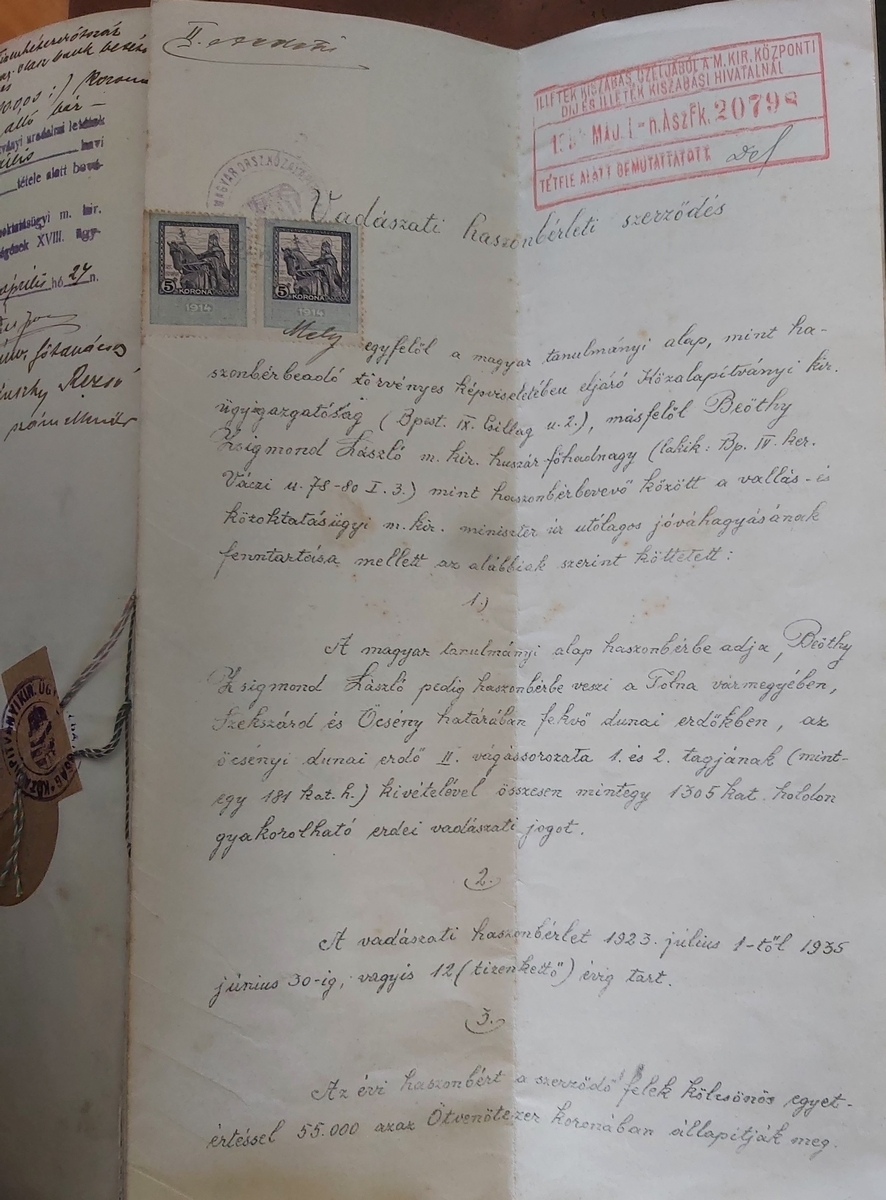 II. eredeti
ILLETÉK KISZABÁS CZÉLJÁBÓL A M. KIR. KÖZPONTI
DIJ ÉS ILLETÉK KISZABÁSI HIVATALNÁL
MÁJ. 1 - n. Á.sz.Fk. 20798
TÉTELE ALATT BEMUTATTATOTT.
MAGYAR ORSZ. KÖZALAP
Vadászati haszonbérleti szerződés
5 KORONA 1914
5 KORONA 1914
Mely egyfelől a magyar tanulmányi alap, mint ha-
szonbérbeadó törvényes képviseletében eljáró Közalapítványi kir.
ügyigazgatóság (Bpest. IX. Csillag u. 2.), másfelől Beöthy
Zsigmond László m. kir. huszár főhadnagy (lakik: Bp. IV. ker.
Váczi u. 78-80 I. 3.) mint haszonbérbevevő között a vallás- és
közoktatásügyi m. kir. miniszter úr utólagos jóváhagyásának
fenntartása mellett az alábbiak szerint köttetett:
1.)
A magyar tanulmányi alap haszonbérbe adja, Beöthy
Zsigmond László pedig haszonbérbe veszi a Tolna vármegyében,
Szekszárd és Őcsény határában fekvő dunai erdőkben, az
őcsényi dunai erdő II. vágássorozata 1. és 2. tagjának (mint-
egy 181 kat. h.) kivételével összesen mintegy 1305 kat. holdon
gyakorolható erdei vadászati jogot.
2.
A vadászati haszonbérlet 1923. július 1-től 1935
június 30-ig, vagyis 12 (tizenkettő) évig tart.
3.
Az évi haszonbért a szerződő felek kölcsönös egyet-
értéssel 55.000 azaz Ötvenötezer koronában állapítják meg.